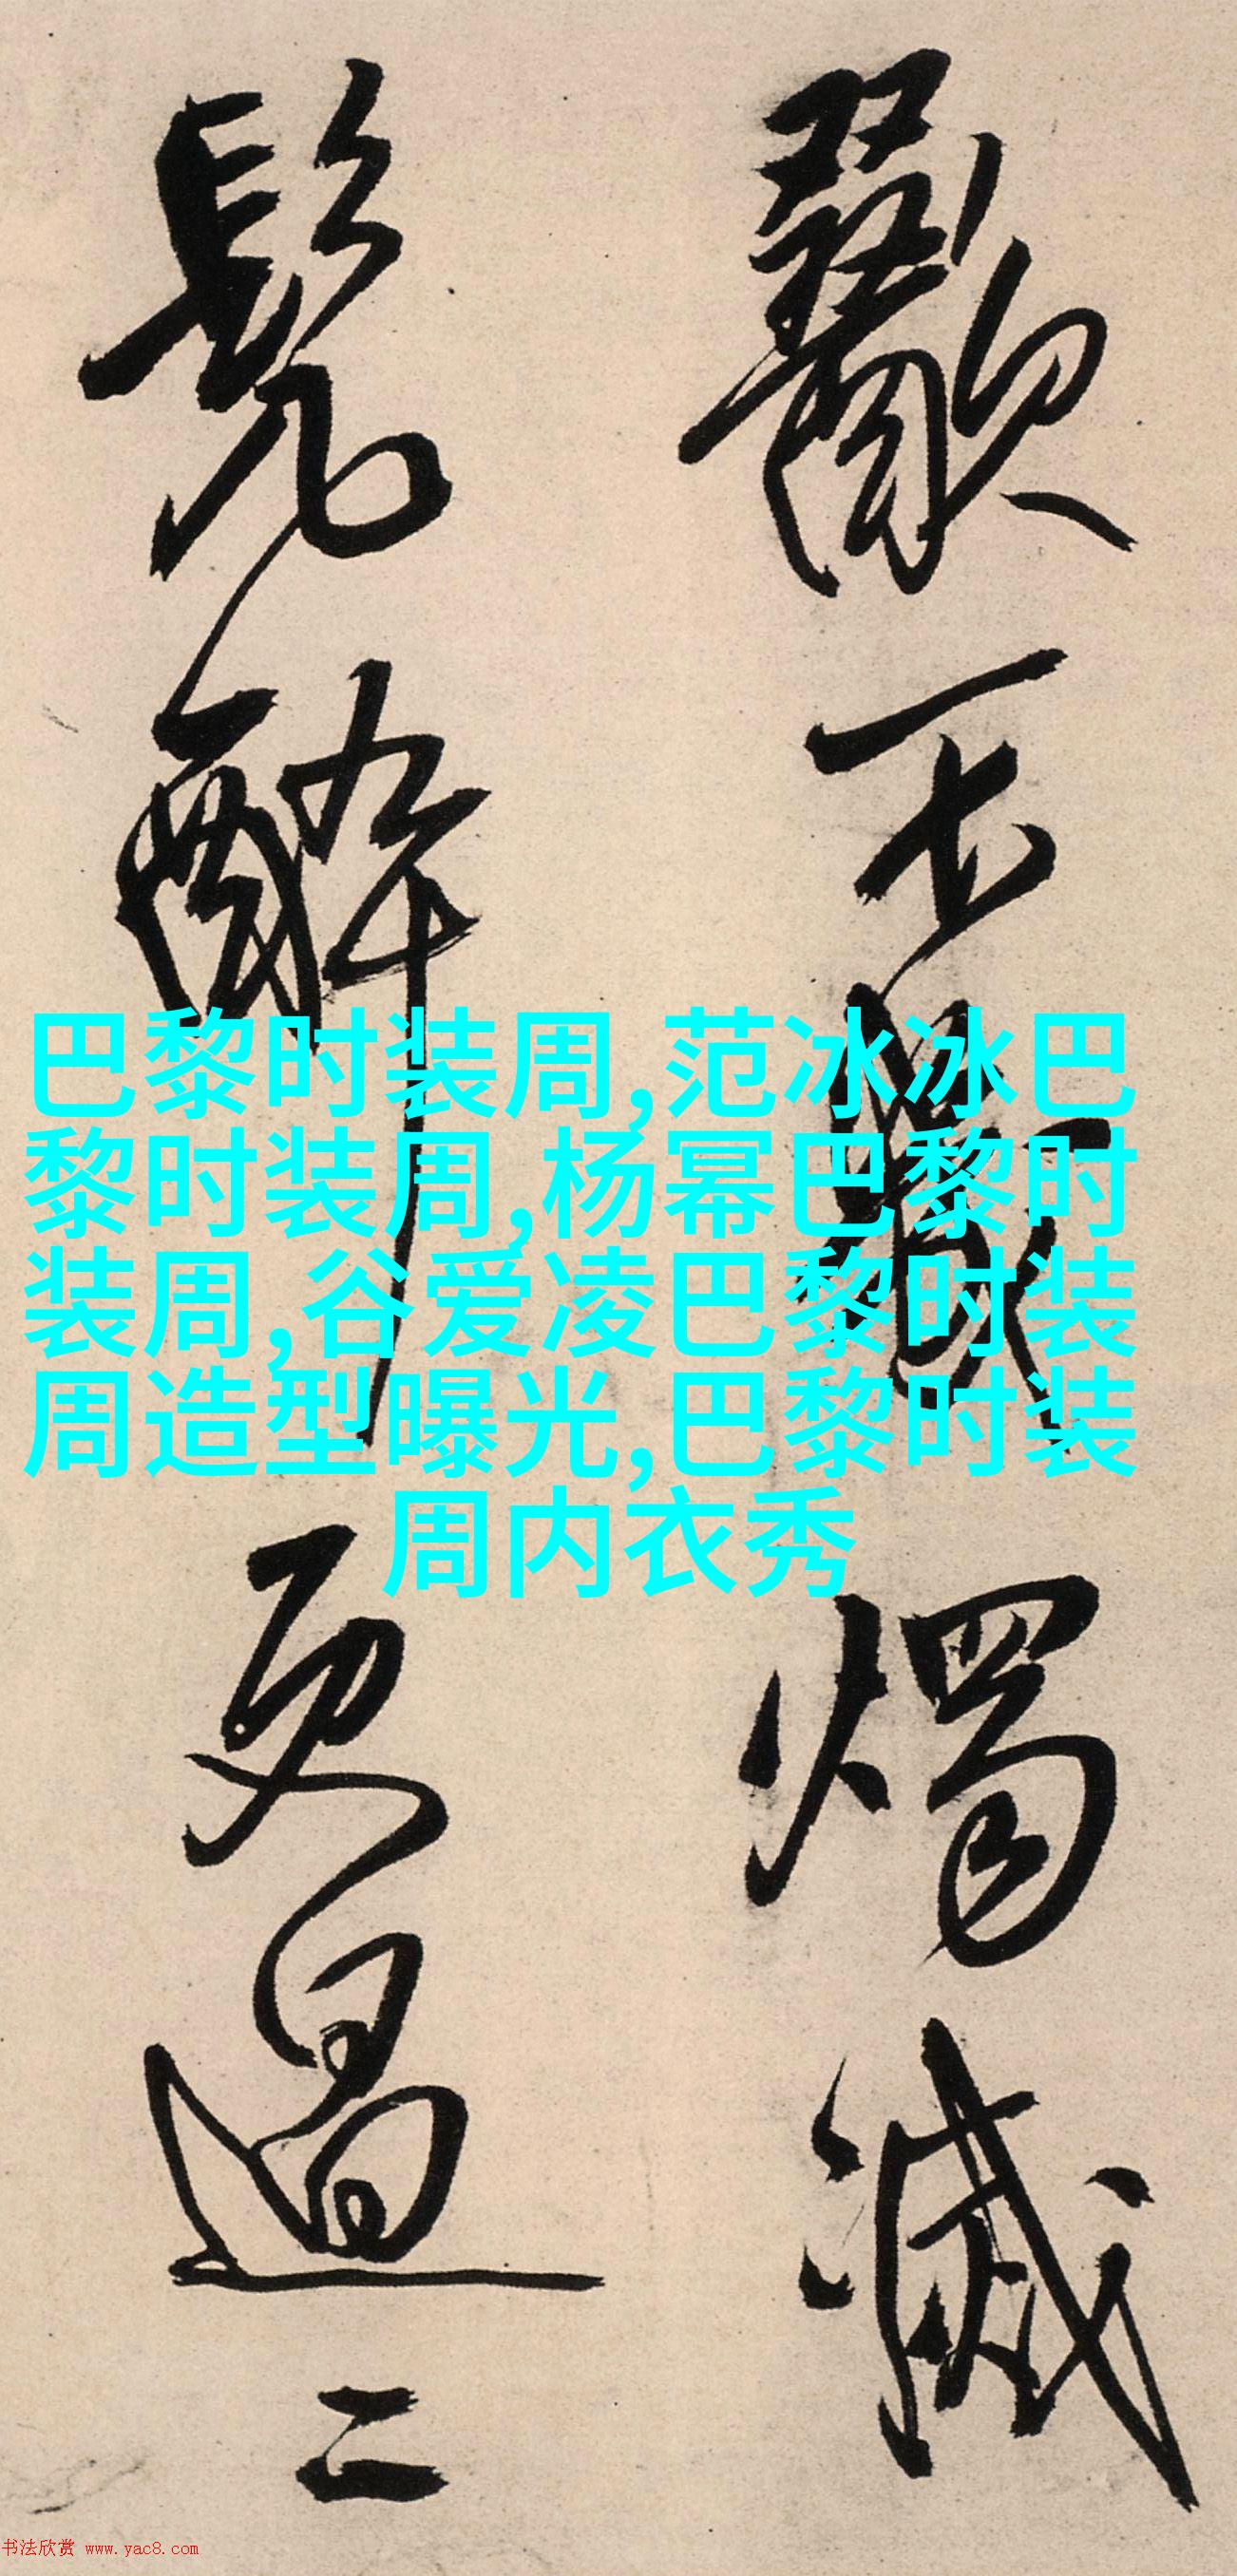 歠不觉烛灭
鬓醉更过二
巴黎时装周,范冰冰巴
黎时装周,杨幂巴黎时
装周,谷爱凌巴黎时装
周造型曝光,巴黎时装
周内衣秀
书法欣赏 www.yac8.com